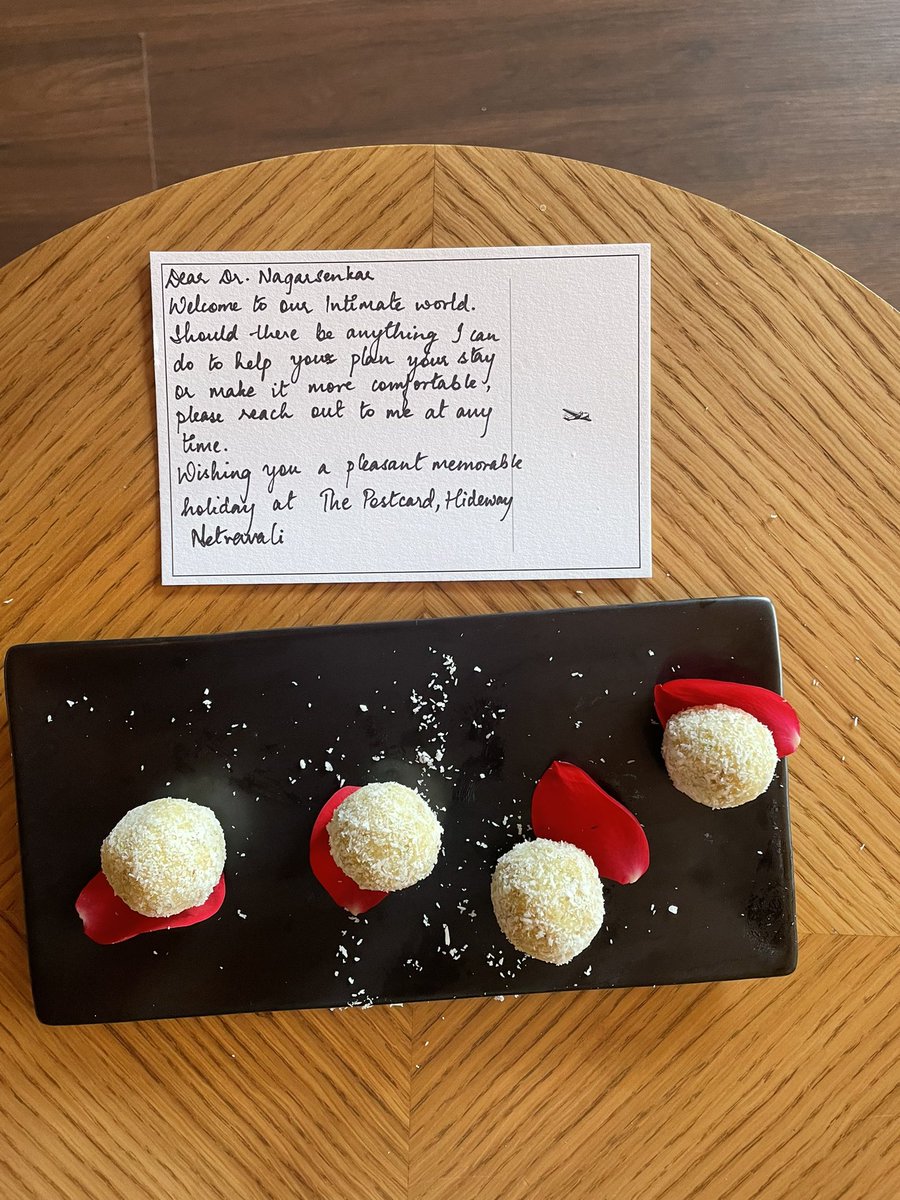 Dear Dr. Nagarsenkar
Welcome to our Intimate world.
Should there be anything I can
do to help your plan your stay
or make it more comfortable,
please reach out to me at any
time.
Wishing you a pleasant memorable
holiday at The Postcard, Hideway
Netravali